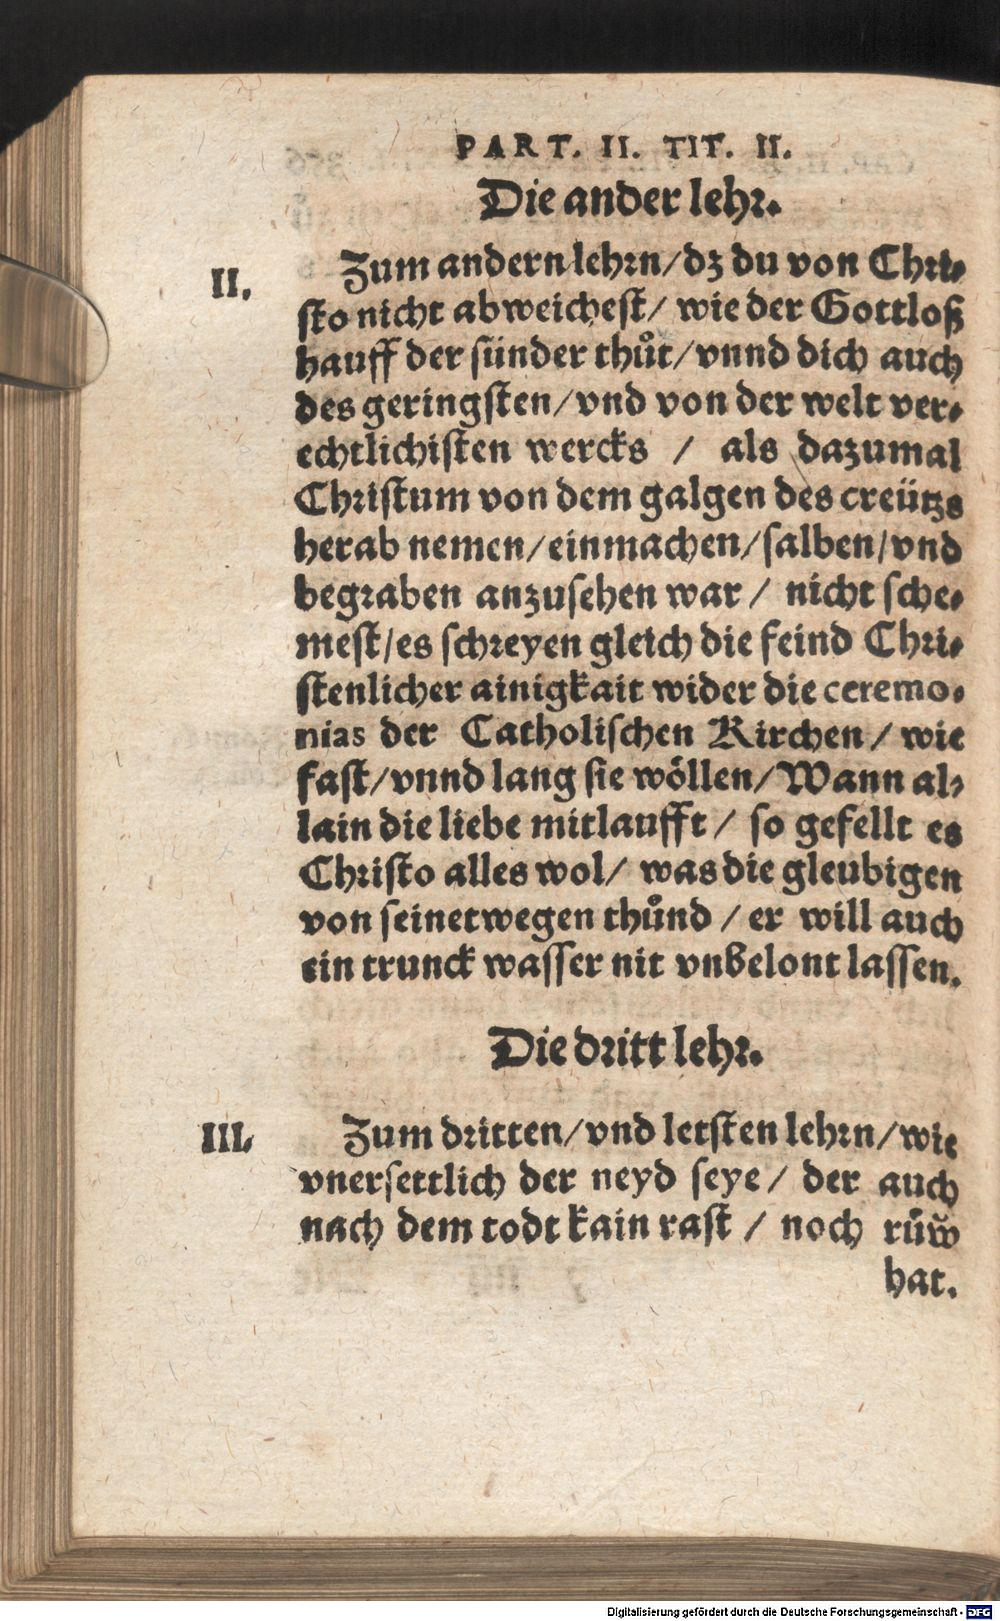 PART. II. TIT. II.
Die ander lehr.
II.
Zum andern lehrn/dz du von Chri-
sto nicht abweichest/ wie der Gottloß
hauff der sünder thůt/vnnd dich auch
des geringsten/vnd von der welt ver-
echtlichisten wercks / als dazumal
Christum von dem galgen des creützs
herab nemen/einmachen/salben/vnd
begraben anzusehen war / nicht sche-
mest/es schreyen gleich die feind Chri-
stenlicher ainigkait wider die ceremo-
nias der Catholischen Kirchen / wie
fast/vnnd lang sie wöllen/Wann al-
lain die liebe mitlaufft / so gefellt es
Christo alles wol/ was die gleubigen
von seinetwegen thůnd / er will auch
ein trunck wasser nit vnbelont lassen.
Die dritt lehr.
III.
Zum dritten/vnd letsten lehrn/wie
vnersettlich der neyd seye / der auch
nach dem todt kain rast / noch růw
hat.
Digitalisierung gefördert durch die Deutsche Forschungsgemeinschaft - DFG